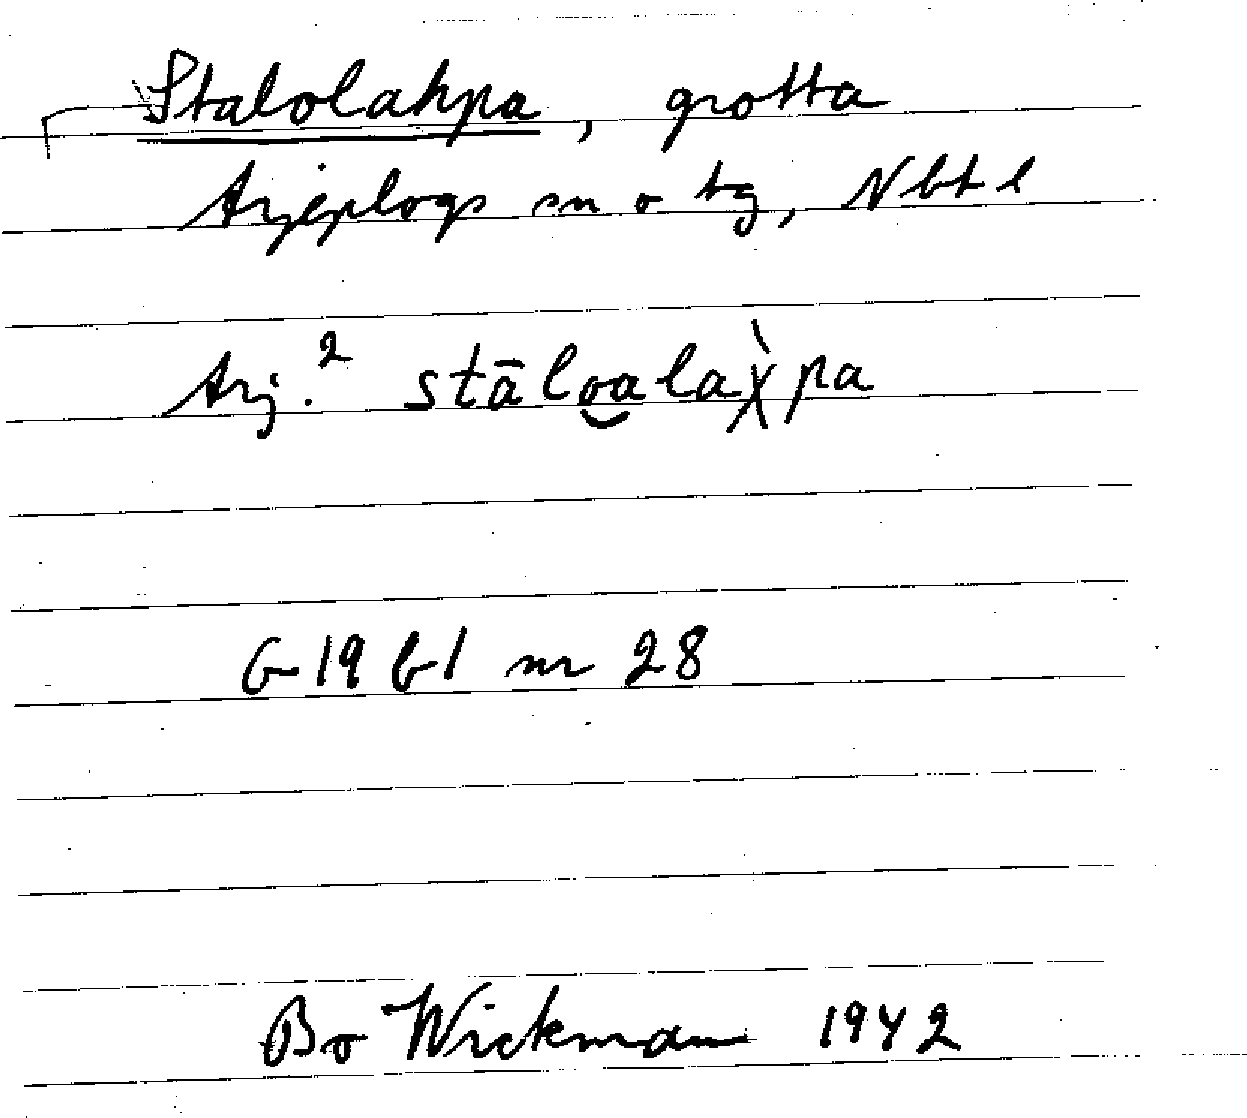 Stalolahpa, grotta
Arjeplogs sn o tg, Nbt l
Arj.² stālo͜alaχ̀pa
G 19 b1 nr 28
Bo Wickman 1942